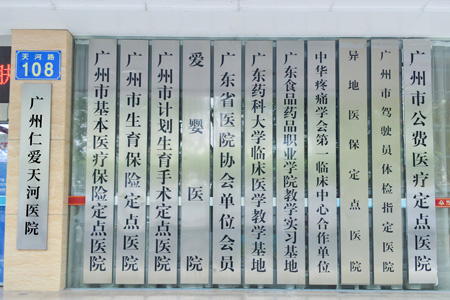 天河路
108
广州仁爱天河医院
广州市基本医疗保险定点医院
广州市生育保险定点医院
广州市计划生育手术定点医院
爱婴医院
广东省医院协会单位会员
广东药科大学临床医学教学基地
广东食品药品职业学院教学实习基地
中华疼痛学会第一临床中心合作单位
异地医保定点医院
广州市驾驶员体检指定医院
广州市公费医疗定点医院